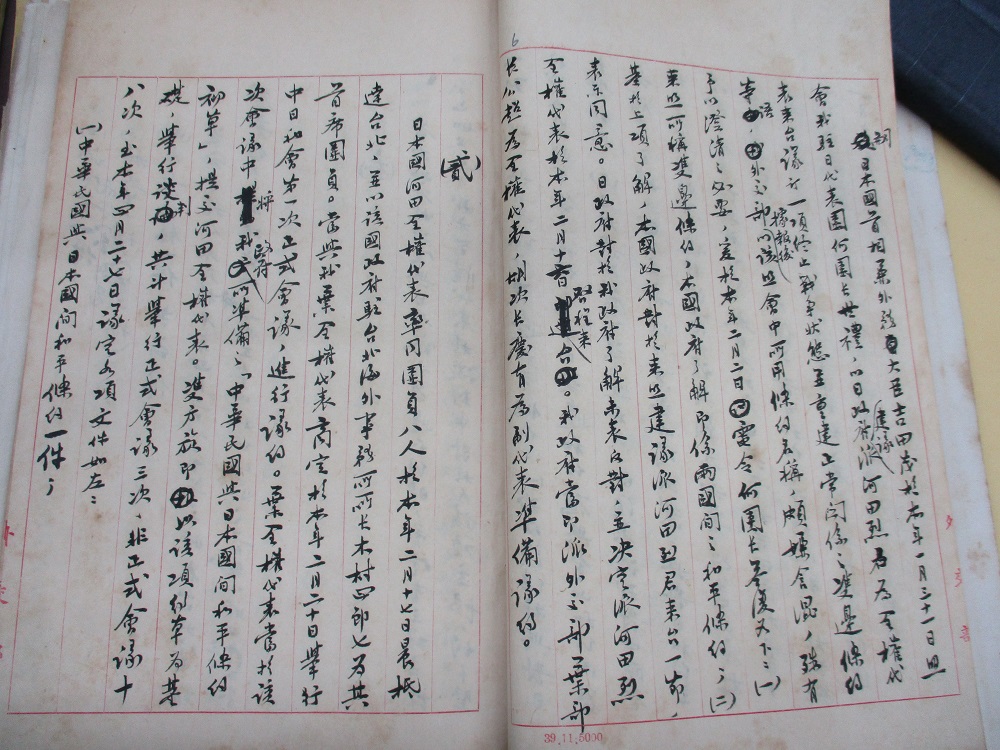 6
嗣日本國首相兼外務大臣吉田茂於本年一月三十一日照
會我駐日代表團何團長世禮,以日政府建議派河田烈君為全權代
表來台議訂一項終止戰爭狀態並重建正常關係之雙邊條約
等語,外交部據報後以該照會中所用條約名稱,頗嫌含混,殊有
予以澄清之必要,爰於本年二月二日電令何團長答復如下:(一)
來照所稱雙邊條約,本國政府了解即係兩國間之和平條約;(二)
基於上項了解,本國政府對於來照建議派河田烈君來台一節,
表示同意。日政府對於我政府了解未表反對,並決定派河田烈
全權代表於本年二月十啓程來台。我政府當即派外交部葉部
長公超為全權代表,胡次長慶育為副代表準備議約。
(貳)
日本國河田全權代表率同團員八人於本年二月十七日晨抵
達台北,並以該國政府駐台北海外事務所所長木村四郎七為其
首席團員。當與我葉全權代表商定於本年二月二十日舉行
中日和會第一次正式會議,進行議約。葉全權代表當於該
次會議中將我政府所準備之「中華民國與日本國間和平條約
初草」,提交河田全權代表。雙方旋即以該項約草為基
礎,舉行談判,共計舉行正式會議三次,非正式會議十
八次,至本年四月二十七日議定各項文件如左:
(一)中華民國與日本國間和平條約一件;
外交部
39.11.5000